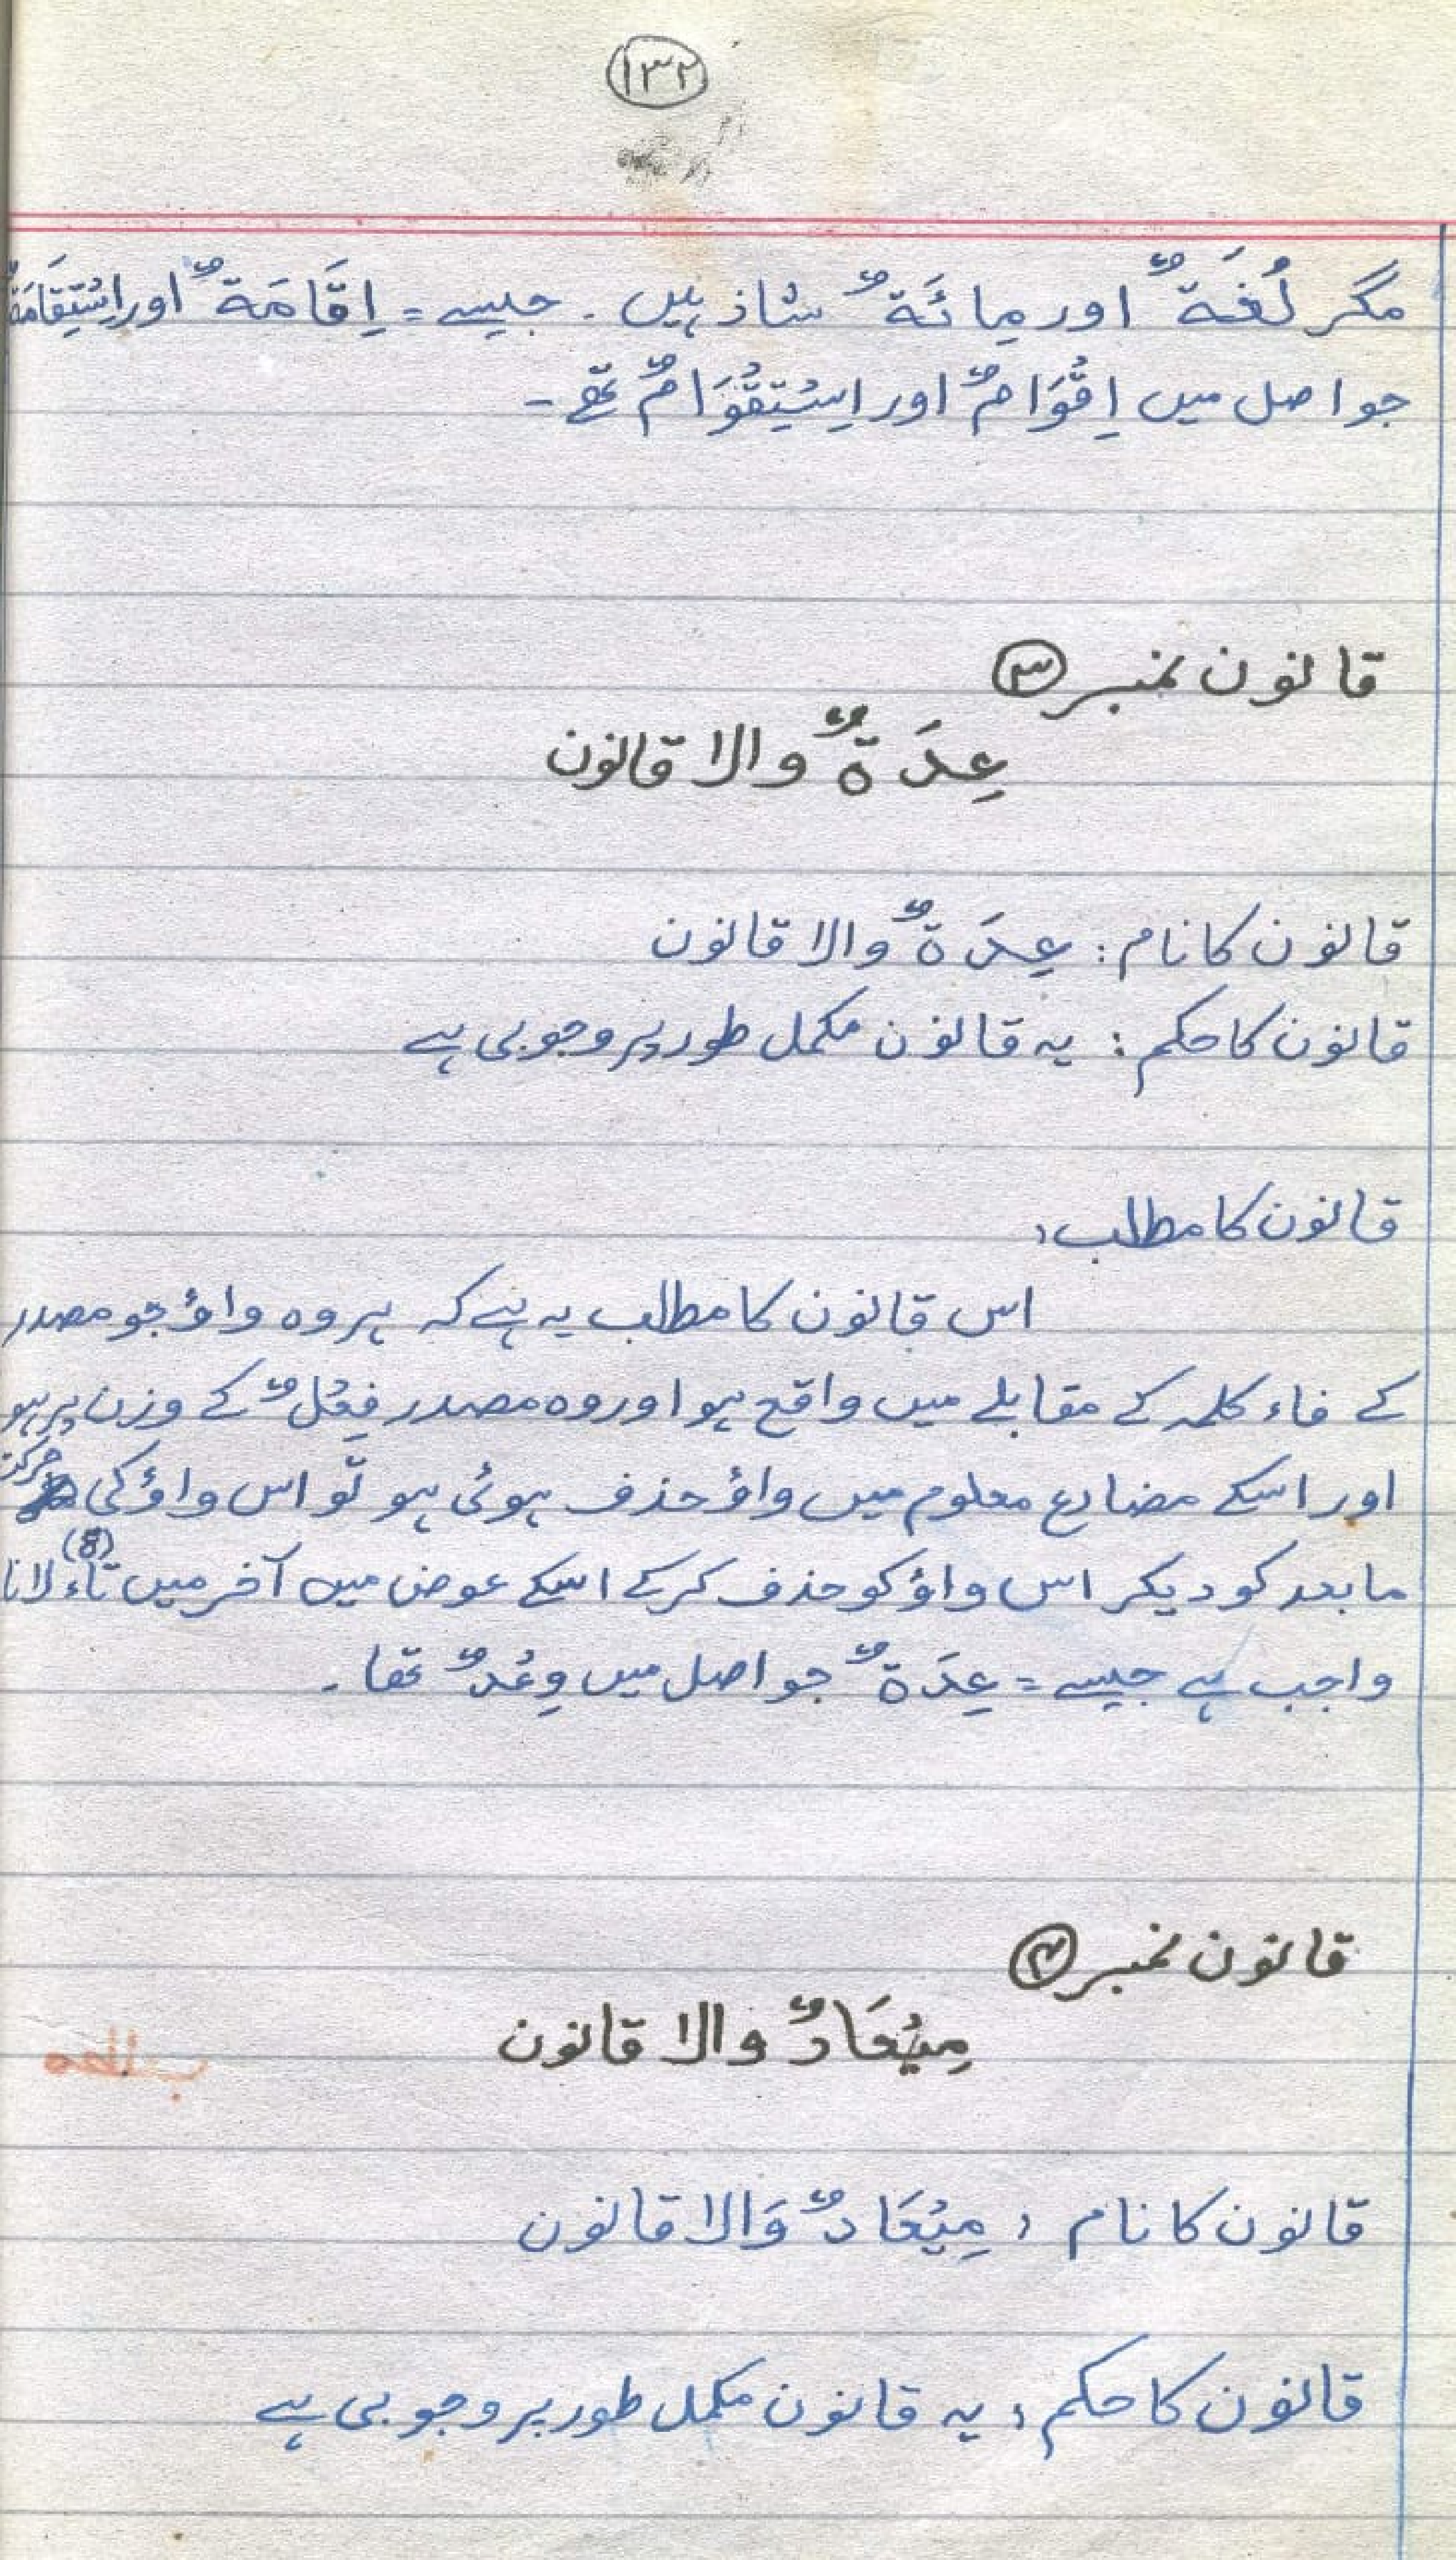 ۱۳۲
مگر لُغَةٌ اور مِائَةٌ شاذ ہیں۔ جیسے = اِقَامَةٌ اور اِسْتِقَامَةٌ
جو اصل میں اِقْوَامٌ اور اِسْتِقْوَامٌ تھے۔
قانون نمبر ۳
عِدَةٌ والا قانون
قانون کا نام: عِدَةٌ والا قانون
قانون کا حکم: یہ قانون مکمل طور پر وجوبی ہے
قانون کا مطلب:
اس قانون کا مطلب یہ ہے کہ ہر وہ واؤ جو مصدر
کے فاء کلمہ کے مقابلے میں واقع ہو اور وہ مصدر فِعْلٌ کے وزن پر ہو
اور اسکے مضارع معلوم میں واؤ حذف ہوئی ہو تو اس واؤ کی حرکت
ما بعد کو دیکر اس واؤ کو حذف کرکے اسکے عوض میں آخر میں تاء (ة) لانا
واجب ہے جیسے = عِدَةٌ جو اصل میں وِعْدٌ تھا۔
قانون نمبر ۴
مِیْعَادٌ والا قانون
قانون کا نام: مِیْعَادٌ وَالا قانون
قانون کا حکم: یہ قانون مکمل طور پر وجوبی ہے